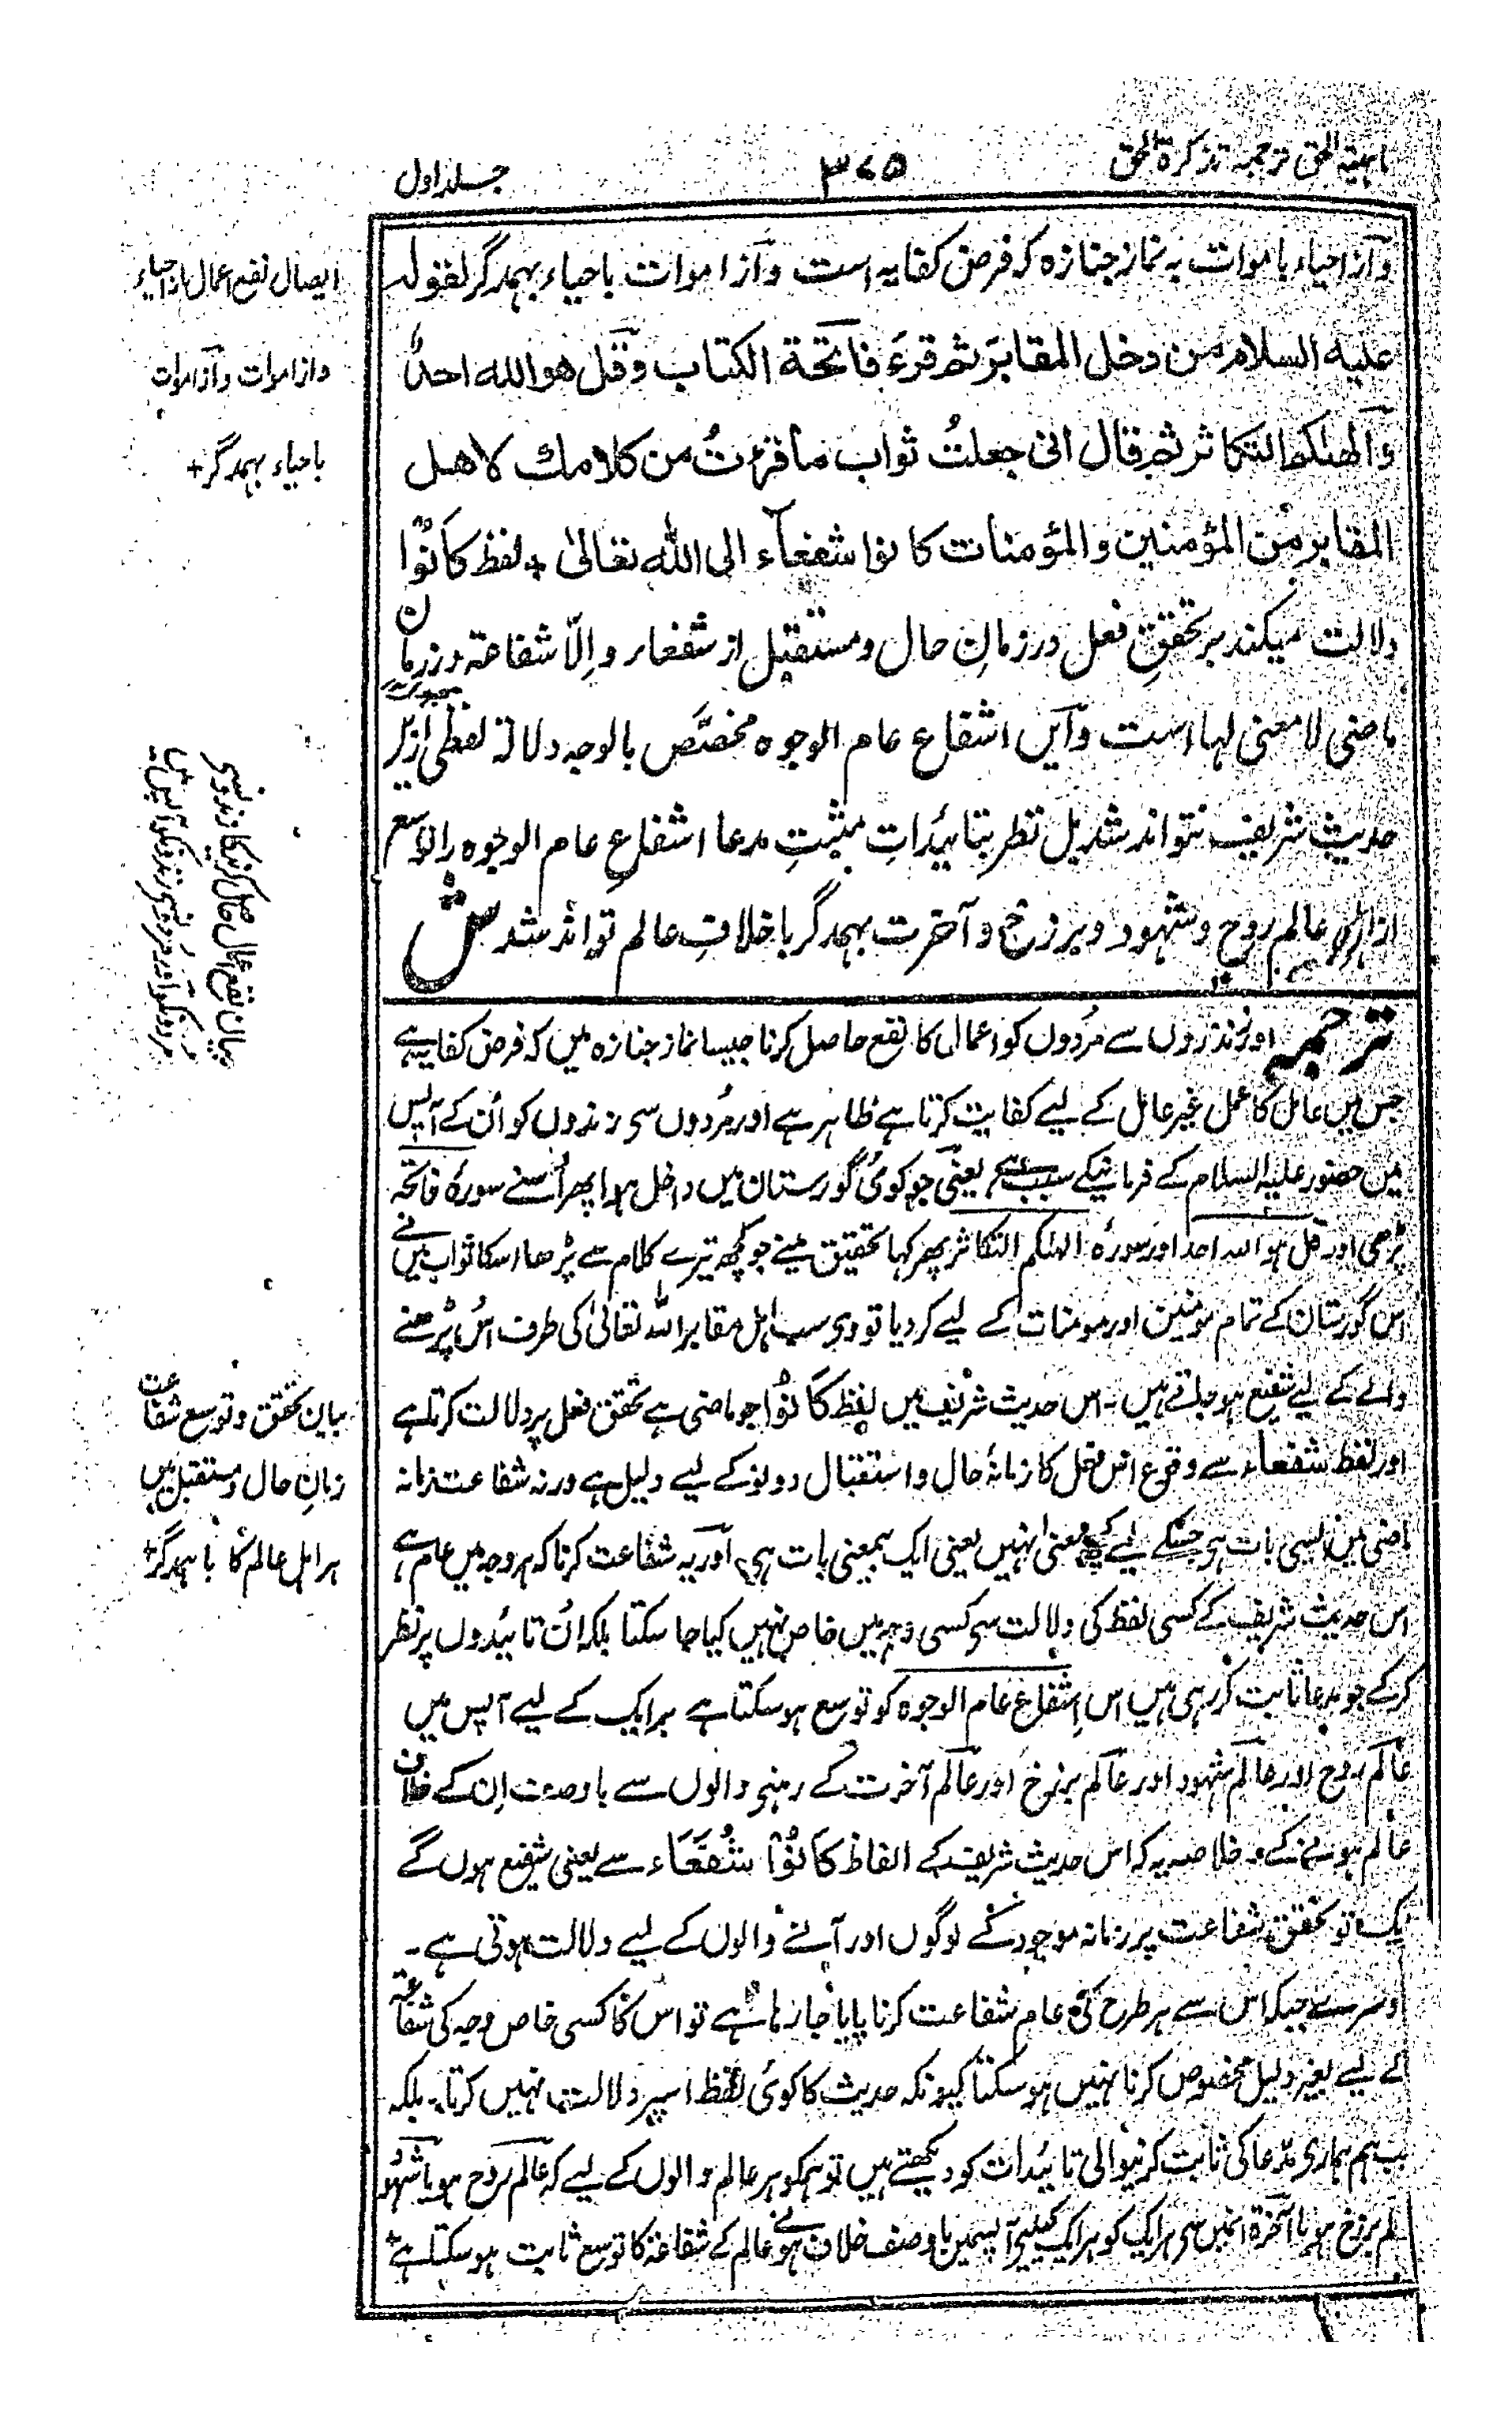 ماہیۃ الحق ترجمہ تذکرۃ الحق
۳۷۵
جلد اول
وآز احیاء باموات بہ نماز جنازہ کہ فرض کفایہ است وآز اموات باحیاء بہمدگر لقولہ
علیہ السلام من دخل المقابر ثم قرء فاتحۃ الکتاب وقل ھو اللہ احد
وآلھٰکم التکاثر ثم قال انی جعلتُ ثواب ما قرءتُ من کلامک لاھل
المقابر من المؤمنین والمؤمنات کانوا شفعآء الی اللہ تعالیٰ + لفظ کانُوْا
دلالت میکند بر تحققِ فعل در زمانِ حال ومستقبل از شفعاء والّا شفاعۃ در زمان
ماضی لا معنی لہا است وآیں اشفاع عام الوجوہ مخصَّص بالوجہ دلالۃ لفظی ازیں
حدیث شریف نتواند شد بل نظر بتائیداتِ مثبتِ مدعا اشفاعِ عام الوجوہ را توسع
از اہل عالم روح وشہود وبرزخ وآخرت بہمدگر باخلافِ عالم تواند شد ش
ترجمہ اور زندوں سے مُردوں کو اعمال کا نفع حاصل کرنا جیسا نماز جنازہ میں کہ فرض کفایہ ہے
جس میں عامل کا عمل غیر عامل کے لیے کفایت کرتا ہے ظاہر ہے اور مُردوں سی زندوں کو اُن کے آپس
میں حضور علیہ السلام کے فرمانیکے سبب سے یعنی جو کوئی گورستان میں داخل ہوا پھر اُسنے سورۂ فاتحہ
پڑھی اور قل ہو اللہ احد اور سورۂ الھٰکم التکاثر پھر کہا تحقیق مینے جو کچھ تیرے کلام سے پڑھا اسکا ثواب میں نے
اس گورستان کے تمام مومنین اور مومنات کے لیے کردیا تو وہ سب اہل مقابر اللہ تعالیٰ کی طرف اُس پڑھنے
والے کے لیے شفیع ہوجاتے ہیں ۔ اس حدیث شریف میں لفظ کانُوْا جو ماضی ہے تحقق فعل پر دلالت کرتا ہے
اور لفظ شفعاء سے وقوع اس فعل کا زمانۂ حال و استقبال دونو کے لیے دلیل ہے ورنہ شفاعت زمانہ
ماضی میں ایسی بات ہی جسکے لیے کچھ معنی نہیں یعنی ایک بیمعنی بات ہی، اور یہ شفاعت کرنا کہ ہر وجہ میں عام ہے
اس حدیث شریف کے کسی لفظ کی دلالت سی کسی وجہ میں خاص نہیں کیا جا سکتا بلکہ اُن تائیدوں پر نظر
کرکے جو مدعا ثابت کررہی ہیں اس اِشفاع عام الوجوہ کو توسع ہوسکتا ہے ہر ایک کے لیے آپس میں
عالم روح اور عالم شہود اور عالم برزخ اور عالم آخرت کے رہنی والوں سے باوصف اِن کے خلاف
عالم ہونے کے ۔ خلاصہ یہ کہ اس حدیث شریف کے الفاظ کَانُوْا شُفَعَاء سے یعنی شفیع ہوں گے
یک تو تحقق شفاعت پر زمانہ موجود کے لوگوں اور آنے والوں کے لیے دلالت ہوتی ہے ۔
وسرے جبکہ اس سے ہر طرح کی عام شفاعت کرنا پایا جارہا ہے تو اس کا کسی خاص وجہ کی شفاعۃ
کے لیے بغیر دلیل مخصوص کرنا نہیں ہوسکتا کیونکہ حدیث کا کوئی لفظ اسپر دلالت نہیں کرتا ۔ بلکہ
جب ہم ہماری مدعا کی ثابت کرنیوالی تائیدات کو دیکھتے ہیں تو ہمکو ہر عالم والوں کے لیے کہ عالم روح ہو یا شہود
لم برزخ ہو یا آخرۃ انمیں سی ہر ایک کو ہر ایک کیلیے آپسمیں باوصف خلاف ہونے عالم کے شفاعۃ کا توسع ثابت ہوسکتا ہے
ایصال نفع اعمال از احیاء
واز اموات وآز اموات
باحیاء بہمدگر +
بیان نفع اعمال حاصل کرنیکا زندونسی
مردونکو آور مردونسی زندونکو آپس میں
بیان تحقق و توسع شفاعت
زمانِ حال و مستقبل میں
ہر اہلِ عالم کا باہمدگر +